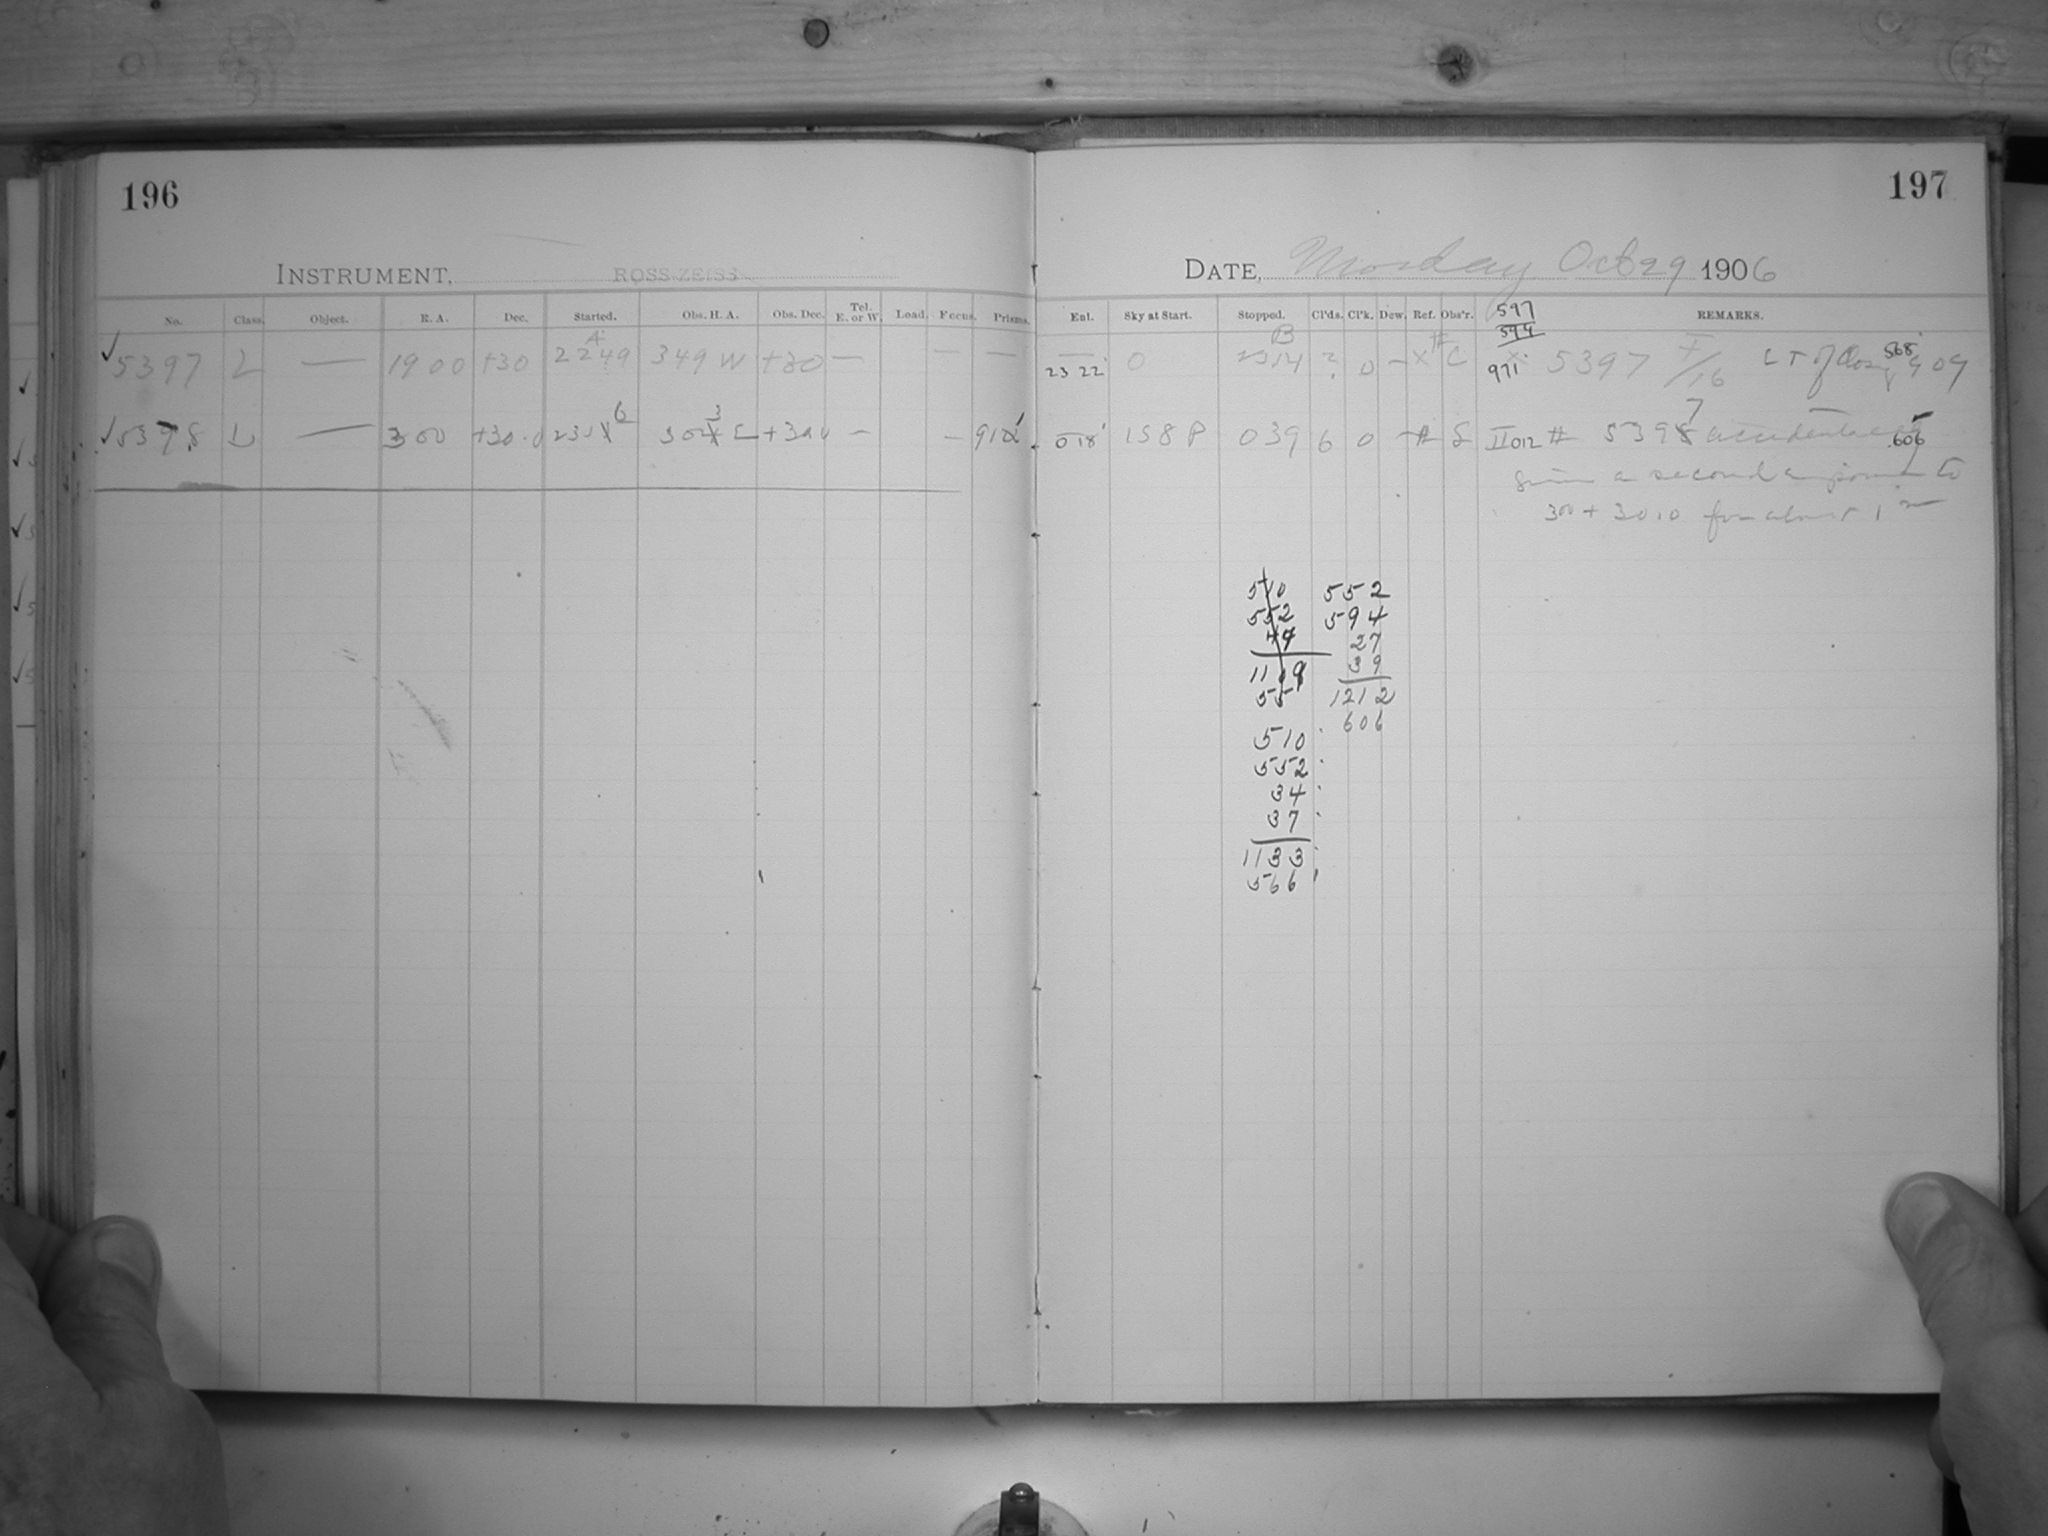 196
197
INSTRUMENT, ROSS-ZEISS
DATE, Monday Oct 29 1906
No. Class. Object. R. A. Dec. Started. Obs. H. A. Obs. Dec. Tel. E. or W. Load. Focus. Prisms. Enl. Sky at Start. Stopped. Cl'ds. Cl'k. Dew. Ref. Obs'r. REMARKS.
597
594
A B
✓ 5397 L — 19 00 +30 22 49 349 W +30 — — — — 0 2314 ? 0 – X C X 5397 LT of 409
23 22 971 568
✓ 5398 L — 300 +30.0 — — 018 158 P 039 6 0 – # S II 012 # 539 7 accidentally 606
given a second exposure to
300 + 30.0 for about 1 m
510 552
552 594
47 27
1109 39
55 1212
510 606
552
34
37
1133
566